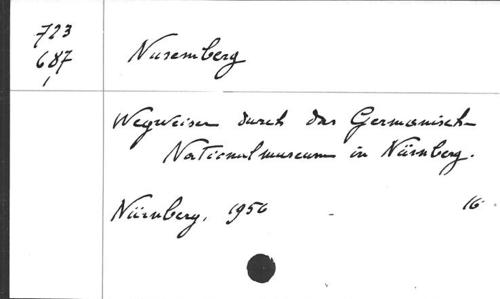 723
687
Nuremberg
Wegweiser durch das Germanisch-
Nationalmuseum in Nürnberg.
Nürnberg, 1956 - 16